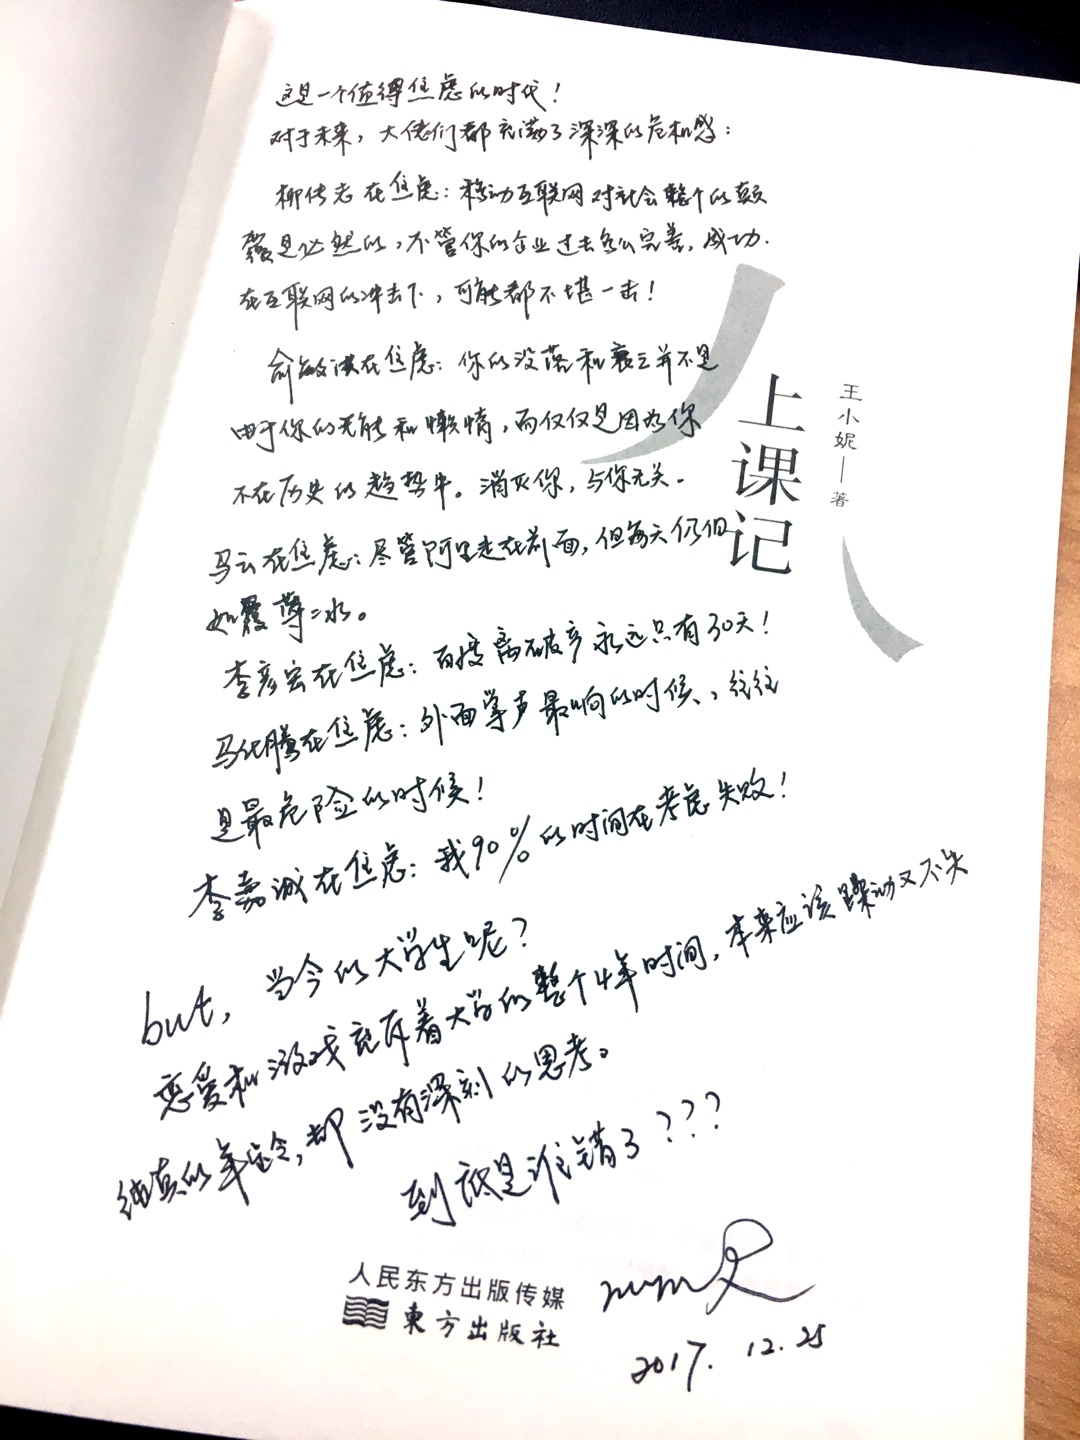 这是一个值得焦虑的时代！
对于未来，大佬们都充满了深深的危机感：
柳传志在焦虑：移动互联网对社会整个的颠
覆是必然的，不管你的企业过去多么完善，成功.
在互联网的冲击下，可能都不堪一击！
俞敏洪在焦虑：你的没落和衰亡并不是
由于你的无能和懒惰，而仅仅是因为你
不在历史的趋势中。消灭你，与你无关。
马云在焦虑：尽管阿里走在前面，但每天仍旧
如履薄冰。
李彦宏在焦虑：百度离破产永远只有30天！
马化腾在焦虑：外面掌声最响的时候、往往
是最危险的时候！
李嘉诚在焦虑：我90%的时间在考虑失败！
but，当今的大学生呢？
恋爱和游戏充斥着大学的整个4年时间，本来应该躁动又不失
纯真的年龄，却没有深刻的思考。
到底是谁错了？？？
2017.12.25
上课记
王小妮—著
人民东方出版传媒
東方出版社